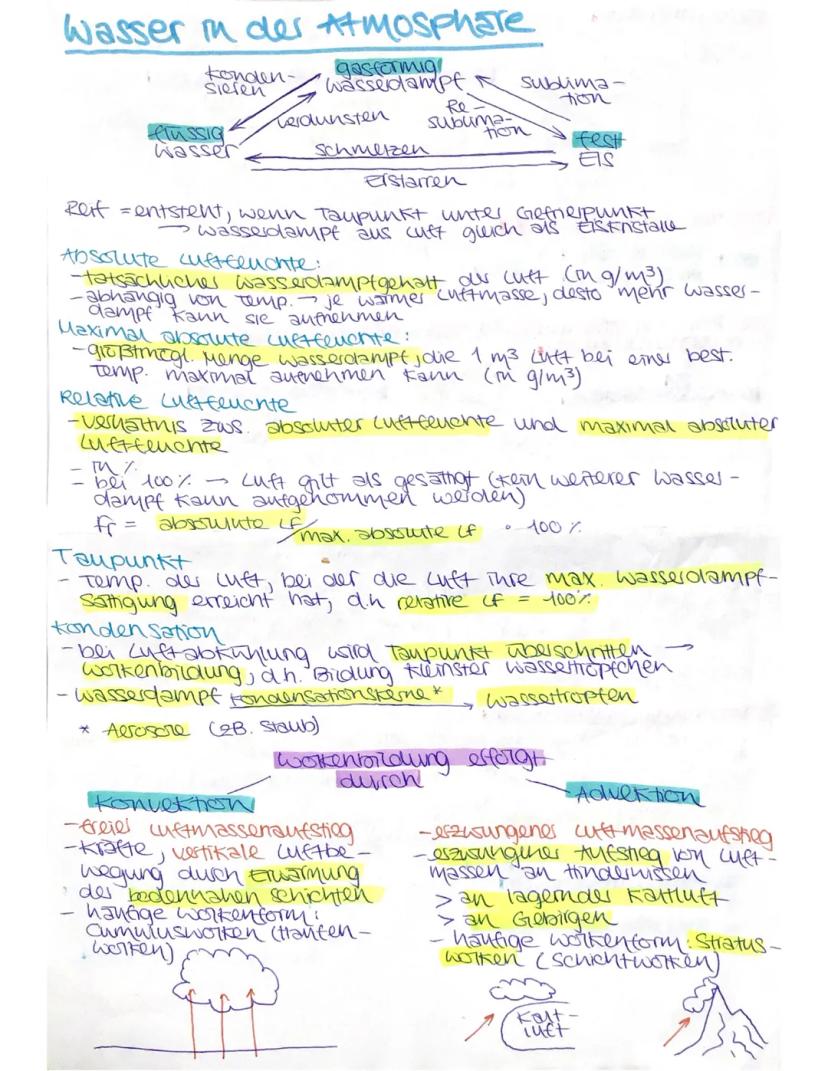 Wasser in der Atmosphäre
gasförmig
Wasserdampf
konden-
sieren
sublima-
tion
verdunsten
Re-
sublima-
tion
flüssig
Wasser
fest
Eis
schmelzen
erstarren
Reif = entsteht, wenn Taupunkt unter Gefrierpunkt
→ Wasserdampf aus Luft gleich als Eiskristalle
Absolute Luftfeuchte:
- tatsächlicher Wasserdampfgehalt der Luft (in g/m³)
- abhängig von Temp. → je wärmer Luftmasse, desto mehr Wasser-
dampf kann sie aufnehmen
Maximal absolute Luftfeuchte:
- größtmögl. Menge Wasserdampf, die 1 m³ Luft bei einer best.
Temp. maximal aufnehmen kann (in g/m³)
Relative Luftfeuchte
- Verhältnis zws. absoluter Luftfeuchte und maximal absoluter
Luftfeuchte
- in %
- bei 100% → Luft gilt als gesättigt (kein weiterer Wasser-
dampf kann aufgenommen werden)
fr = absolute LF / max. absolute LF · 100 %
Taupunkt
- Temp. der Luft, bei der die Luft ihre max. Wasserdampf-
sättigung erreicht hat, d.h relative LF = 100%
Kondensation
- bei Luftabkühlung wird Taupunkt überschritten →
Wolkenbildung, d.h. Bildung kleinster Wassertröpfchen
- Wasserdampf Kondensationskerne* → Wassertropfen
* Aerosole (zB. Staub)
Wolkenbildung erfolgt
durch
Konvektion
- freier Luftmassenaufstieg
- kräfte, vertikale Luftbe-
wegung durch Erwärmung
der bodennahen Schichten
- häufige Wolkenform:
Cumuluswolken (Haufen-
wolken)
Advektion
- erzwungener Luftmassenaufstieg
- erzwungener Aufstieg von Luft-
massen an Hindernissen
> an lagernder Kaltluft
> an Gebirgen
- häufige Wolkenform: Stratus-
wolken (Schichtwolken)
Kalt-
luft